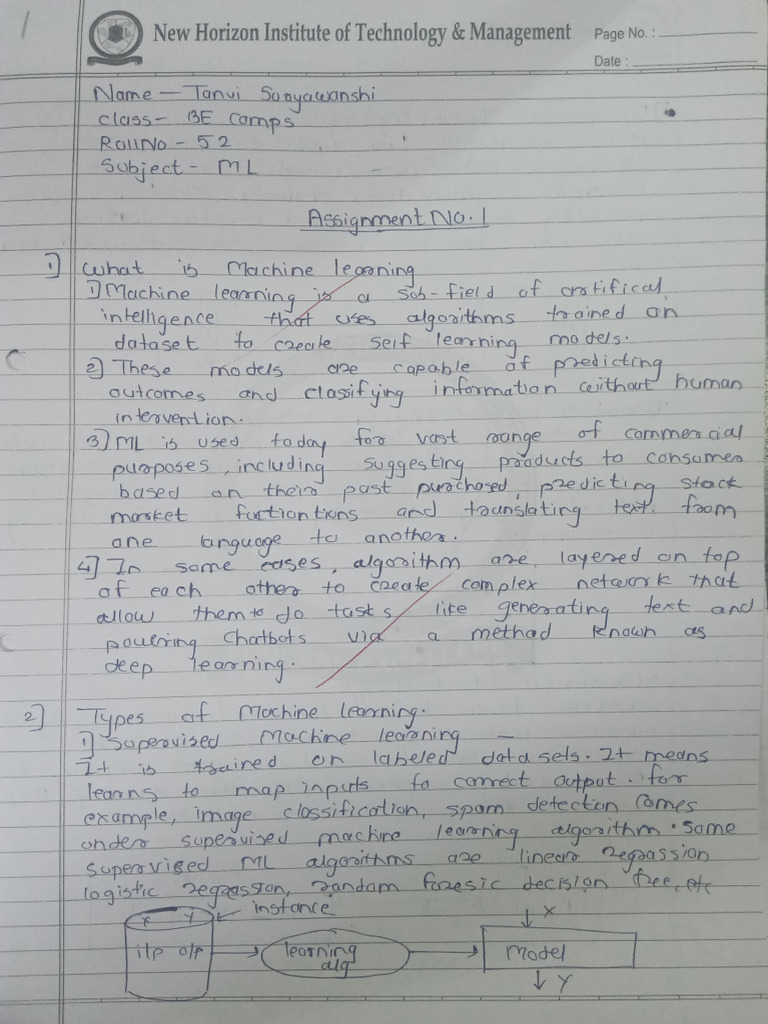 1
New Horizon Institute of Technology & Management
Page No. :
Date :
Name - Tanvi Suryawanshi
class - BE comps
Roll No - 52
Subject - ML
Assignment No. 1
1] What is Machine learning
1) Machine learning is a sub-field of artifical
intelligence that uses algorithms trained on
dataset to create self learning models.
2] These models are capable of predicting
outcomes and classifying information without human
intervention.
3) ML is used today for vast range of commercial
purposes, including suggesting products to consumer
based on their past purchased, predicting stock
market and translating text from
one language to another.
4] In some cases, algorithm are layered on top
of each other to create complex network that
allow them to do tasks like generating text and
powering chatbots via a method known as
deep learning.
2] Types of Machine learning.
1] Supervised Machine learning -
It is trained on labeled data sets. It means
learns to map inputs to correct output. for
example, image classification, spam detection comes
under supervised machine learning algorithm. Some
supervised ML algorithms are linear regression
logistic regression, random decision tree, etc
x y instance x
i/p o/p learning alg model
y